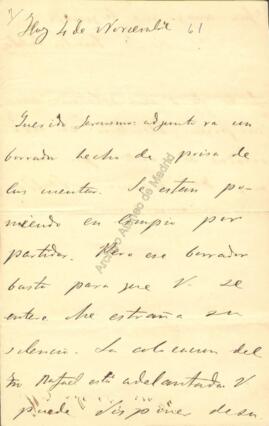 Hoy 4 de Noviembre 61
Querido Jeronimo: adjunto va un
borrador hecho de prisa de
las cuentas. Se estan po-
niendo en limpio por
partidas. Pero ese borrador
basta para que V. se
entere. Me estraña su
silencio. La colocacion del
Rafael está adelantada. V
puede disponer de su
Archivo Ateneo de Madrid